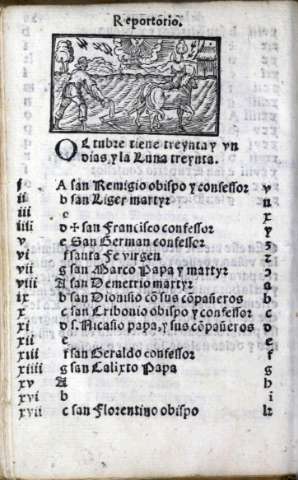 Reportorio.
OCtubre tiene treynta y vn
dias, y la Luna treynta.
j A san Remigio obispo y confessor v
ii b san Liger martyr
iii c x
iiii d ✠ san Francisco confessor y
v e San German confessor
vi f santa Fe virgen
vii g san Marco Papa y martyr
viii A san Demetrio martyr a
ix b san Dionisio cõ sus cõpañeros b
x c san Cribonio obispo y confessor c
xi d s. Nicasio papa, y sus cõpañeros d
xii e e
xiii f san Geraldo confessor f
xiiii g san Calixto Papa g
xv A h
xvi b i
xvii c san Florentino obispo k